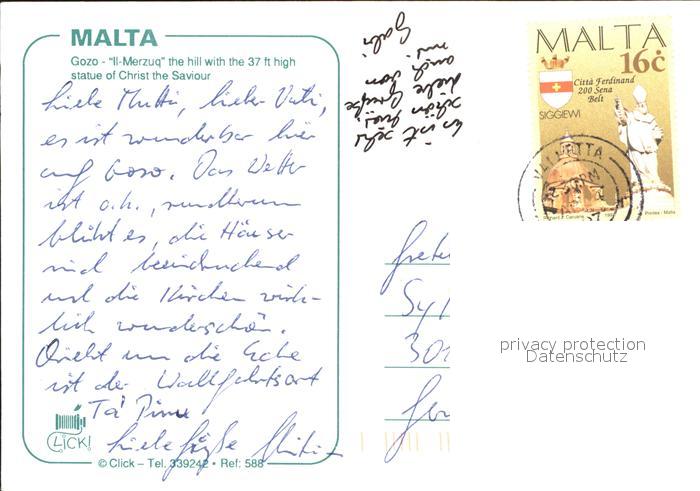 MALTA
Gozo - "Il-Merzuq" the hill with the 37 ft high
statue of Christ the Saviour
Liebe Mutti, lieber Vati,
es ist wunderbar hier
auf Gozo. Das Wetter
ist o.k., rundherum
blüht es, die Häuser
sind beeindruckend
und die Kirchen wirk-
lich wunderschön.
Direkt um die Ecke
ist der Wallfahrtsort
Ta' Pinu
Liebe Grüße
CLICK!
© Click – Tel. 339242 • Ref: 588
Es ist sehr
schön hier,
viele Grüße
auch von
mir
Gabi
MALTA
16c
Città Ferdinand
200 Sena
Belt
SIGGIEWI
VALLETTA
Printex - Malta
301
privacy protection
Datenschutz